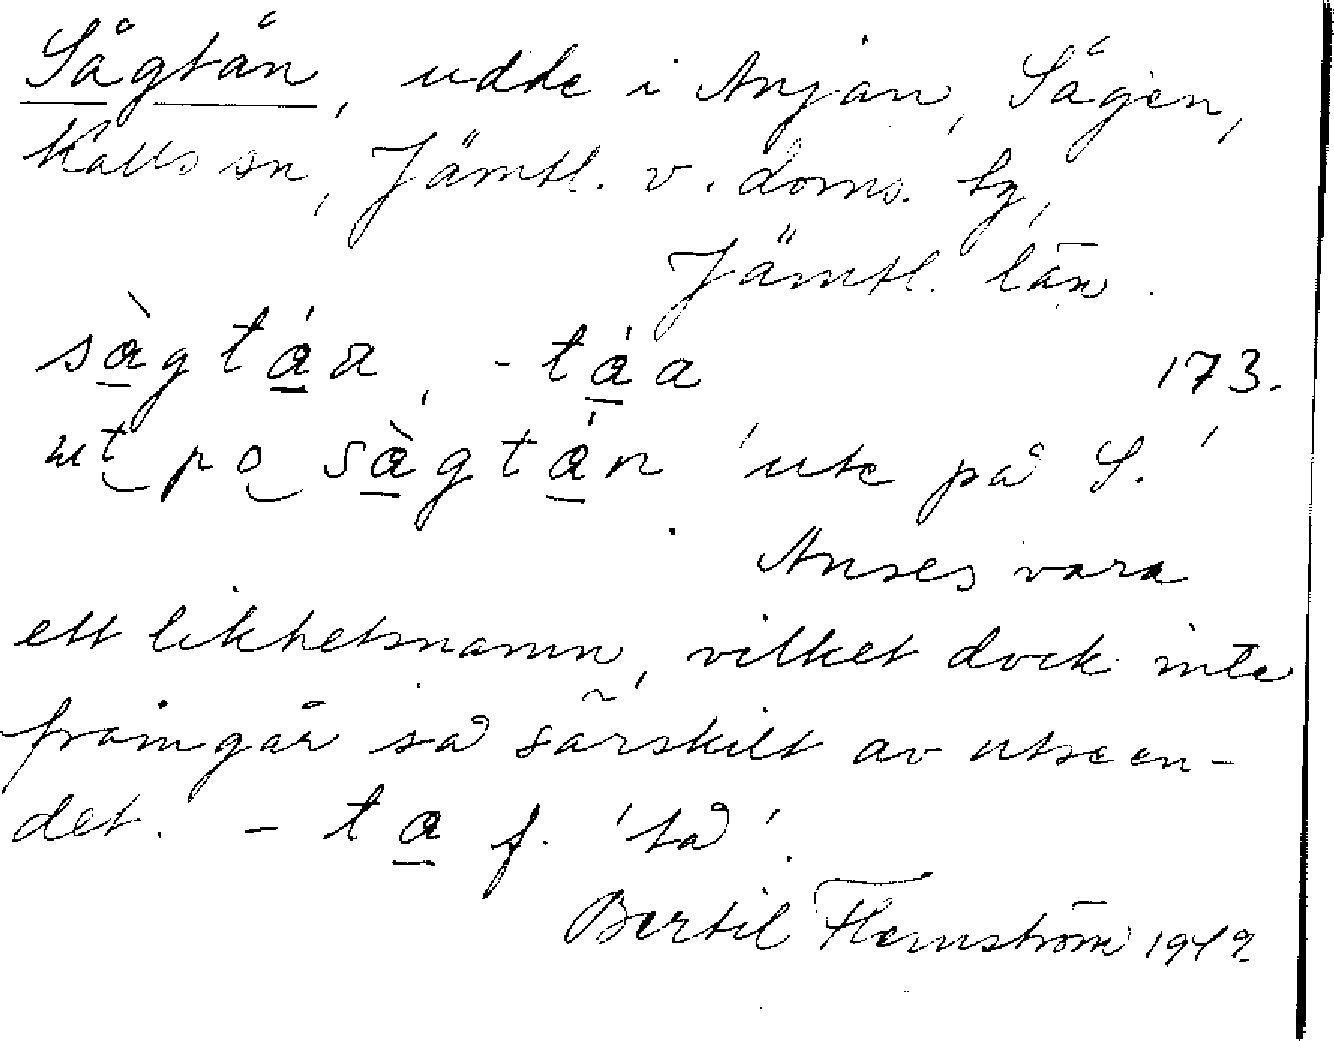 Sågtån, udde i Anjan, Sågen,
Kalls sn, Jämtl. v. doms. tg,
Jämtl. län.
sàgtáa, -táa 173.
ut pa sàgtán 'ute på S.'
Anses vara
ett likhetsnamn, vilket dock inte
framgår så särskilt av utseen-
det. - ta f. 'tå'.
Bertil Flemström 1942